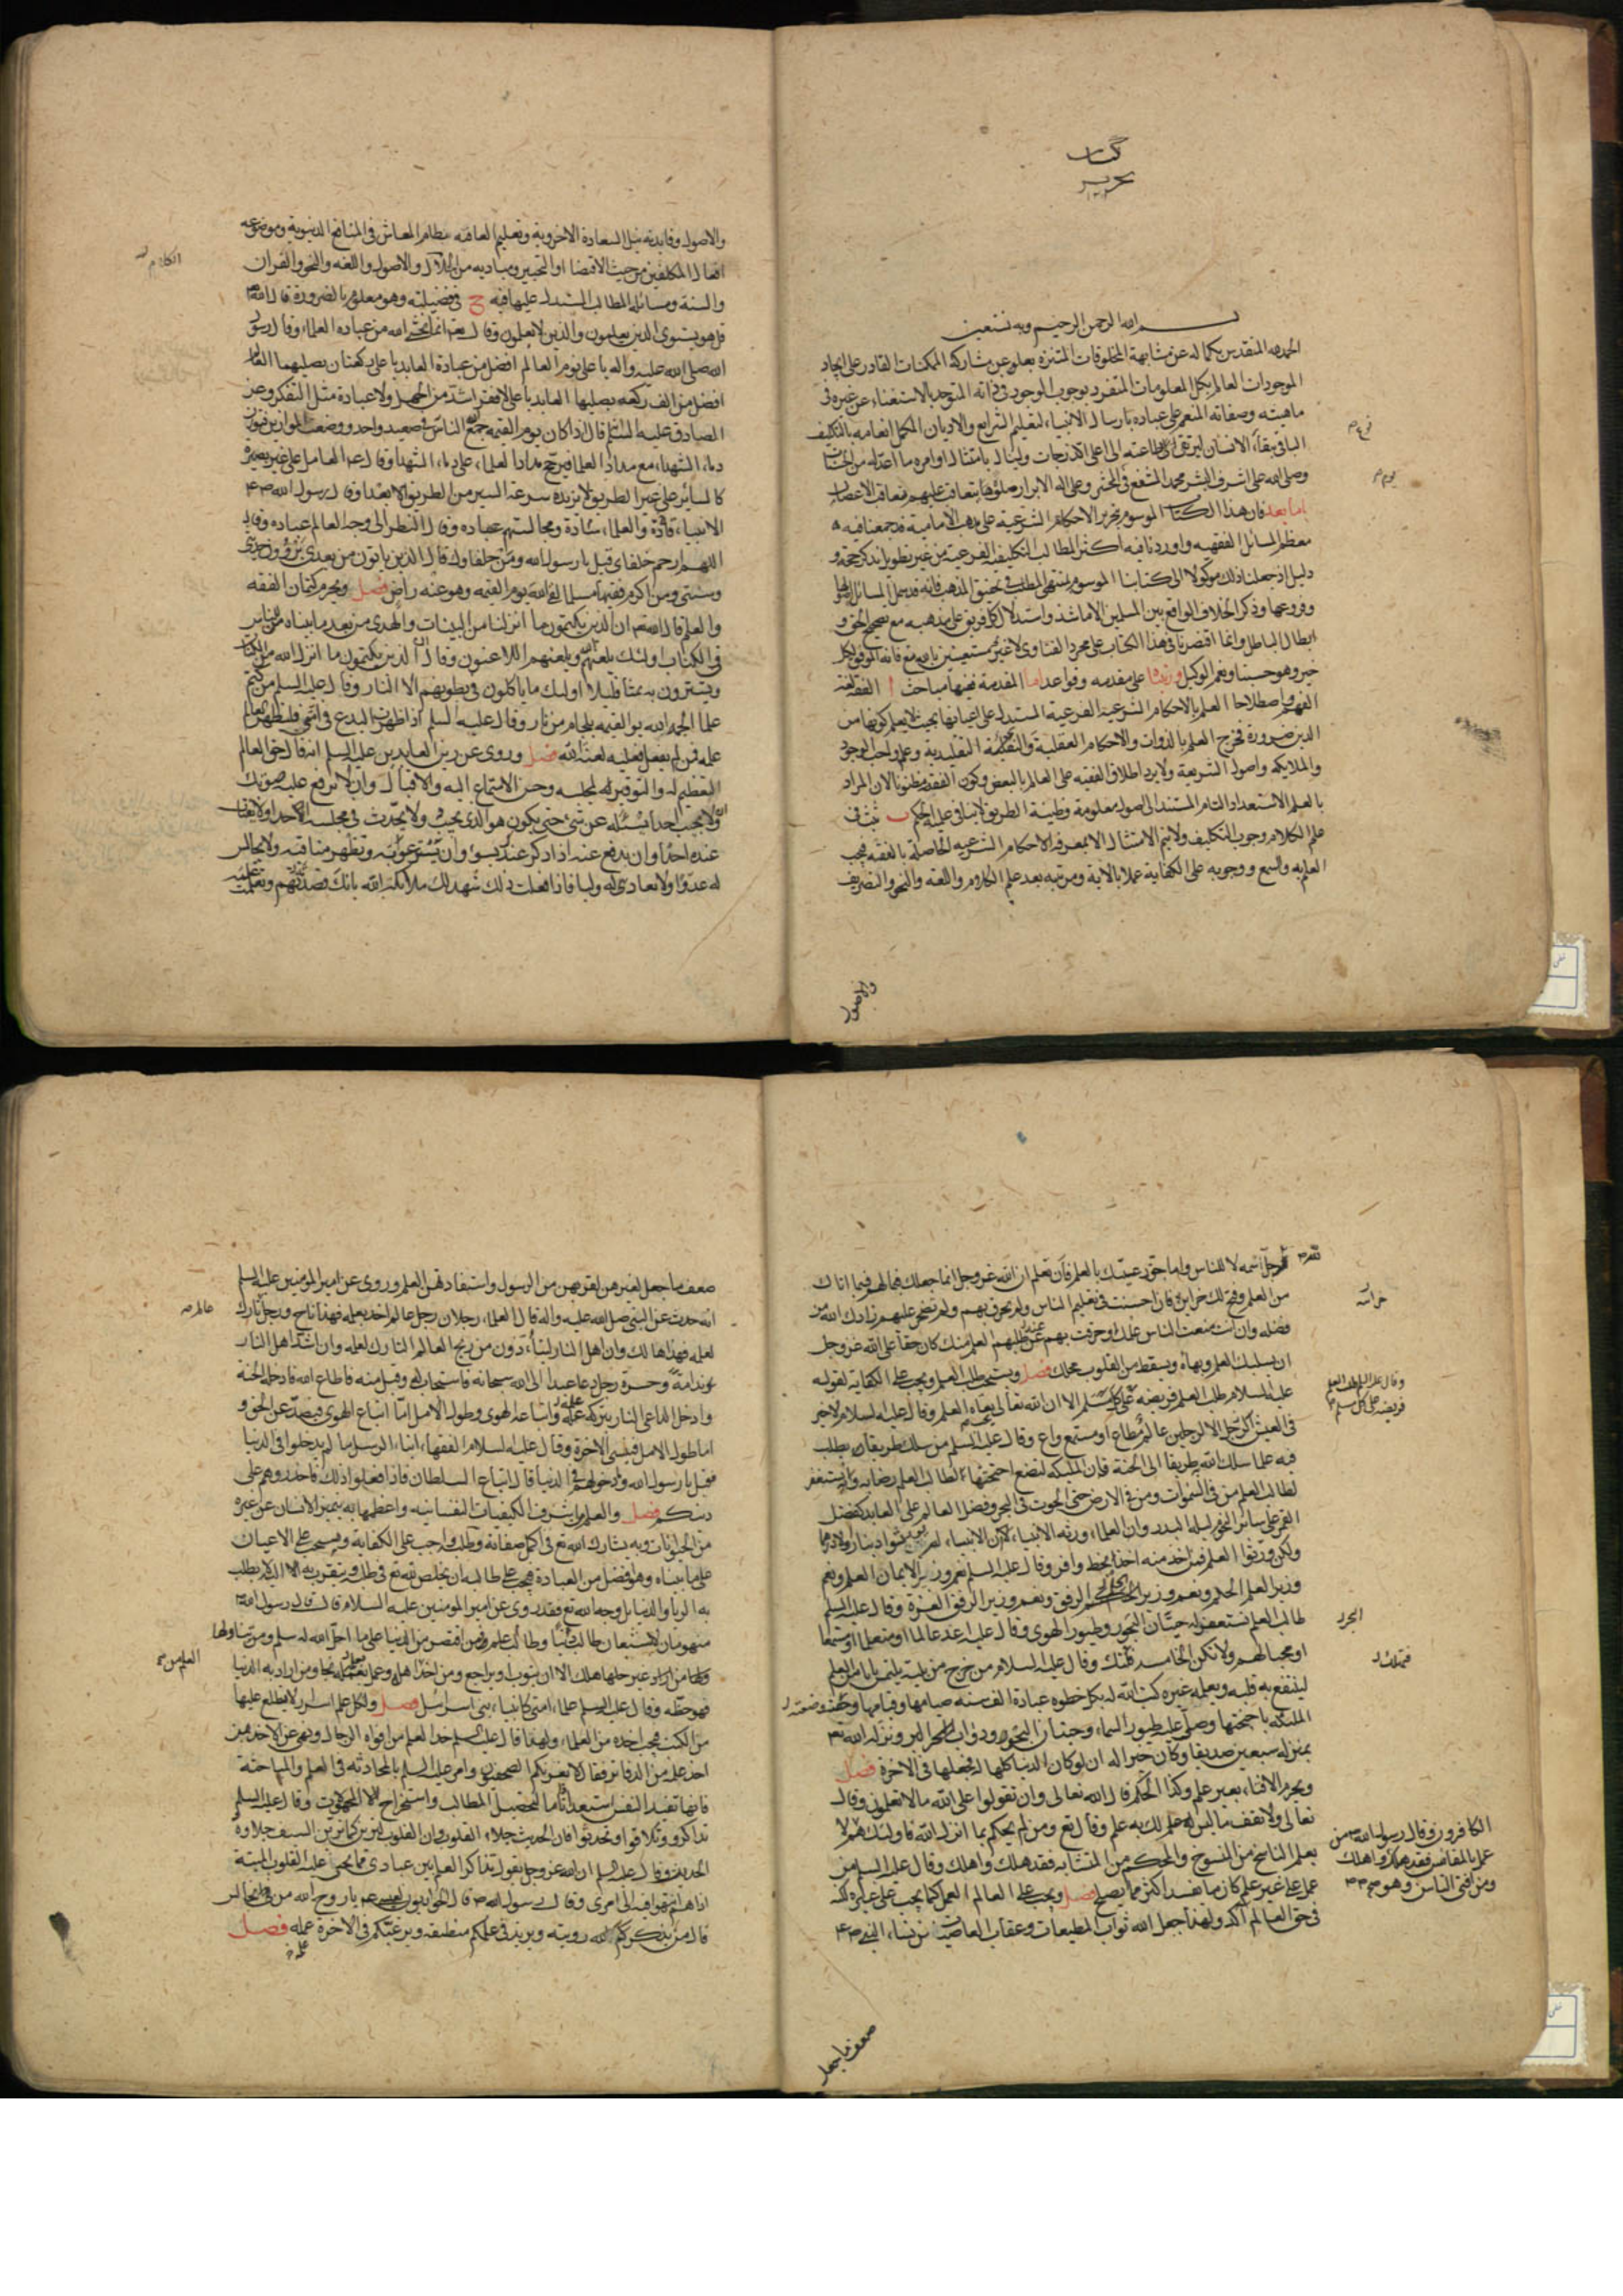 كتاب
تحرير
بسم الله الرحمن الرحيم وبه نستعين
الحمد لله المتقدس بكماله عن مشابهة المخلوقات المتنزه بعلوه عن مشاركة الممكنات القادر على ايجاد
الموجودات العالم بكل المعلومات المتفرد بوجوب الوجود في ذاته المتوحد بالاستغناء عن غيره في
ماهيته وصفاته المنعم على عباده بارسال الانبياء لتعليم الشرايع والاديان المكمل انعامه بالتكليف
الباقي ببقاء الانسان ليرتقي الى طاعته الى اعلى الدرجات وينال بامتثال اوامره ما اعد له من
وصلى الله على اشرف البشر محمد المشفع في المحشر وعلى اله الابرار صلوة يتعاقب عليهم تعاقب الاعصار
اما بعد فان هذا الكتاب الموسوم بتحرير الاحكام الشرعية على مذهب الامامية قد جمعنا فيه
معظم المسائل الفقهيه واوردنا فيه اكثر المطالب التكليفية الفرعية من غير تطويل بذكر حجة و
دليل اذ جعلنا ذلك موكولا الى كتابنا الموسوم بمنتهى المطلب في تحقيق المذهب فانه قد يشمل المسائل
وفروعها وذكر الخلاف الواقع بين المسلمين الا ما شذ واستدلال كل فريق على مذهبه مع تصحيح الحق و
ابطال الباطل وانما اقتصرنا في هذا الكتاب على مجرد الفتاوى لا غير مستعينين بالله تع فانه الموفق لكل
خير وهو حسبنا ونعم الوكيل ورتبته على مقدمه وقواعد اما المقدمة ففيها مباحث ا الفقه لغة
الفهم واصطلاحا العلم بالاحكام الشرعية الفرعية المستدل على اعيانها بحيث لا يعلم كونها من
الدين ضرورة فخرج العلم بالذوات والاحكام العقلية والتقليدية وعلم واجب الوجود
والملايكه واصول الشريعة ولا يرد اطلاق الفقيه على العالم بالبعض وكون الفقه مظنونا لان المراد
بالعلم الاستعداد التام المستند الى اصول معلومة وظنية الطريق لا ينافي علمية الحكم ب ثبت في
علم الكلام وجوب التكليف ولا يتم الامتثال الا بمعرفة الاحكام الشرعيه الحاصلة بالفقه فيجب
العلم به والسمع ووجوبه على الكفاية عملا بالاية ومرتبته بعد علم الكلام واللغة والنحو والتصريف
والاصول
والاصول وفايدته نيل السعادة الاخروية وتعليم العامة نظام المعاش في المنافع الدنيوية وموضوعه
افعال المكلفين من حيث الاقتضا او التخيير ومباديه من الكلام والاصول واللغه والنحو والقران
الكلام
والسنة ومسائله المطالب المستدل عليها فيه ج في فضيلته وهو معلوم بالضرورة قال الله تع
قل هل يستوى الذين يعلمون والذين لا يعلمون وقال تع انما يخشى الله من عباده العلماء وقال رسول
الله صلى الله عليه واله يا على نوم العالم افضل من عبادة العابد يا على ركعتان يصليهما العالم
افضل من الف ركعه يصليها العابد يا على لا فقر اشد من الجهل ولا عبادة مثل التفكر وعن
الصادق عليه السلم قال اذا كان يوم القيمه جمع الله الناس في صعيد واحد ووضعت الموازين فتوزن
دماء الشهداء مع مداد العلماء فيرجح مداد العلماء على دماء الشهداء وقال عم العامل على غير بصيرة
كالسائر على غير الطريق لا يزيده سرعة السير من الطريق الا بعدا وقال رسول الله صم
الانبياء قادة والعلماء سادة ومجالستهم عباده وقال النظر الى وجه العالم عباده وقال
اللهم ارحم خلفاى قيل يا رسول الله ومن خلفاوك قال الذين ياتون من بعدى يروون حديثى
وسنتى ومن اكرم فقيها مسلما لقى الله يوم القيمه وهو عنه راض فصل ويحرم كتمان الفقه
والعلم قال الله تع ان الذين يكتمون ما انزلنا من البينات والهدى من بعد ما بيناه للناس
في الكتاب اولئك يلعنهم الله ويلعنهم اللاعنون وقال ان الذين يكتمون ما انزل الله من الكتاب
ويشترون به ثمنا قليلا اولئك ما ياكلون في بطونهم الا النار وقال عليه السلم من كتم
علما الجمه الله يوم القيمه بلجام من نار وقال عليه السلم اذا ظهرت البدع في امتى فليظهر العالم
علمه فمن لم يفعل فعليه لعنة الله فصل وروى عن زين العابدين عليه السلم انه قال حق العالم
التعظيم له والتوقير لمجلسه وحسن الاستماع اليه والاقبال وان لا ترفع عليه صوتك
ولا تجيب احدا يسئله عن شئ حتى يكون هو الذى يجيب ولا تحدث في مجلسه احدا ولا تغتاب
عنده احدا وان تدفع عنه اذا ذكر عندك بسوء وان تستر عيوبه وتظهر مناقبه ولا تجالس
له عدوا ولا تعادى له وليا فاذا فعلت ذلك شهد لك ملايكة الله بانك قصدته وتعلمت علمه
لله جل اسمه لا للناس واما حق رعيتك بالعلم فان تعلم ان الله عز وجل انما جعلك قيما لهم فيما اتاك
من العلم وفتح لك خزاينه فان احسنت في تعليم الناس ولم تخرق بهم ولم تضجر عليهم زادك الله من
خزائنه
فضله وان انت منعت الناس علمك او خرقت بهم عند طلبهم العلم منك كان حقا على الله عز وجل
ان يسلبك العلم وبهاه ويسقط من القلوب محلك فصل ويستحب طلب العلم ويجب على الكفاية لقوله
عليه السلام طلب العلم فريضة على كل مسلم الا ان الله تعالى يحب بغاة العلم وقال عليه السلام لا خير
وقال عليه السلم طلب العلم
فريضه على كل مسلم
في العيش الا لرجلين عالم مطاع او مستمع واع وقال عليه السلم من سلك طريقا يطلب
فيه علما سلك الله به طريقا الى الجنة فان الملئكه لتضع اجنحتها لطالب العلم رضا به وانه يستغفر
لطالب العلم من في السموات ومن في الارض حتى الحوت في البحر وفضل العالم على العابد كفضل
القمر على سائر النجوم ليلة البدر وان العلماء ورثه الانبياء ان الانبياء لم يورثوا دينارا ولا درهما
ولكن ورثوا العلم فمن اخذ منه اخذ بحظ وافر وقال عليه السلم نعم وزير الايمان العلم ونعم
وزير العلم الحلم ونعم وزير الحلم الرفق ونعم وزير الرفق العبرة وقال عليه السلم
طالب العلم تستغفر له حيتان البحور وطيور الهوى وقال عليه اغد عالما او متعلما او مستمعا
البحر
او محبا لهم ولا تكن الخامسه فتهلك وقال عليه السلام من خرج من بيته يلتمس بابا من العلم
فتهلك
لينتفع به قلبه ويعلمه غيره كتب الله له بكل خطوه عبادة الف سنه صيامها وقيامها وحفته
الملئكه باجنحتها وصلى عليه طيور السماء وحيتان البحور ودواب البر ونزله الله تع
بمنزله سبعين صديقا وكان خيرا له ان لو كان الدنيا كلها له فجعلها في الاخرة فصل
ويحرم الافتاء بغير علم وكذا الحكم قال الله تعالى وان تقولوا على الله ما لا تعلمون وقال
تعالى ولا تقف ما ليس لك به علم وقال تع ومن لم يحكم بما انزل الله فاولئك هم
الكافرون وقال رسول الله صم من
عمل بالمقائيس فقد هلك واهلك
ومن افتى الناس وهو
يعلم الناسخ من المنسوخ والمحكم من المتشابه فقد هلك واهلك وقال عليه السلم من
عمل على غير علم كان ما يفسد اكثر مما يصلح فصل ويجب على العالم العمل كما يجب على غيره لكنه
في حق العالم آكد ولهذا جعل الله ثواب المطيعات وعقاب العاصيات من نساء النبى صم
ضعف ما جعل
ضعف ما جعل لغيرهن لقربهن من الرسول واستفادتهن العلم وروى عن امير المومنين عليه السلم
انه حدث عن النبى صلى الله عليه واله قال العلماء رجلان رجل عالم اخذ بعلمه فهذا ناج ورجل تارك
عالم
لعلمه فهذا هالك وان اهل النار ليتأذون من ريح العالم التارك لعلمه وان اشد اهل النار
ندامة وحسرة رجل دعا عبدا الى الله سبحانه فاستجاب له وقبل منه فاطاع الله فادخله الجنة
وادخل الداعى النار بتركه علمه واتباعه الهوى وطول الامل اما اتباع الهوى فيصد عن الحق و
اما طول الامل فينسى الاخرة وقال عليه السلام الفقهاء امناء الرسل ما لم يدخلوا في الدنيا
فقيل يا رسول الله وما دخولهم في الدنيا قال اتباع السلطان فاذا فعلوا ذلك فاحذروهم على
دينكم فصل والعلم من اشرف الكيفيات النفسانيه واعظمها به يتميز الانسان عن غيره
من الحيوانات وبه يشارك الله تع في اكمل صفاته وطلبه واجب على الكفاية ويستحب على الاعيان
على ما بيناه وهو افضل من العبادة فيجب على طالبه ان يخلص لله تع في طلبه ويتقرب به الى الله لا يطلب
به الرياء والدنيا بل وجه الله تع فقد روى عن امير المومنين عليه السلام قال قال رسول الله صم
منهومان لا يشبعان طالب دنيا وطالب علم فمن اقتصر من الدنيا على ما احل الله له سلم ومن تناولها
العلم من
من غير حلها هلك الا ان يتوب او يراجع ومن اخذ العلم من اهله وعمل بعلمه نجا ومن اراد به الدنيا
فهو حظه وقال عليه السلم علماء امتى كانبياء بنى اسرائيل فصل ولكل علم اسرار لا يطلع عليها
من الكتب فيجب اخذه من العلماء ولهذا قال عليه السلم خذ العلم من افواه الرجال ونهى عن الاخذ ممن
اخذ علمه من الدفاتر فقال لا يغرنكم الصحفيون وامر عليه السلم بالمحادثه في العلم والمباحثة
فانها تفيد النفس استعدادا تاما لتحصيل المطالب واستخراج المجهولات وقال عليه السلم
تذاكروا وتلاقوا وتحدثوا فان الحديث جلاء القلوب وان القلوب لترين كما يرين السيف جلاوه
الحديث وقال عليه السلم ان الله عز وجل يقول تذاكر العلم بين عبادى مما تحيى عليه القلوب الميتة
اذا هم انتهوا فيه الى امرى وقال رسول الله صم قال الحواريون لعيسى عم يا روح الله من نجالس
قال من يذكركم الله رويته ويزيد في علمكم منطقه ويرغبكم في الاخرة عمله فصل